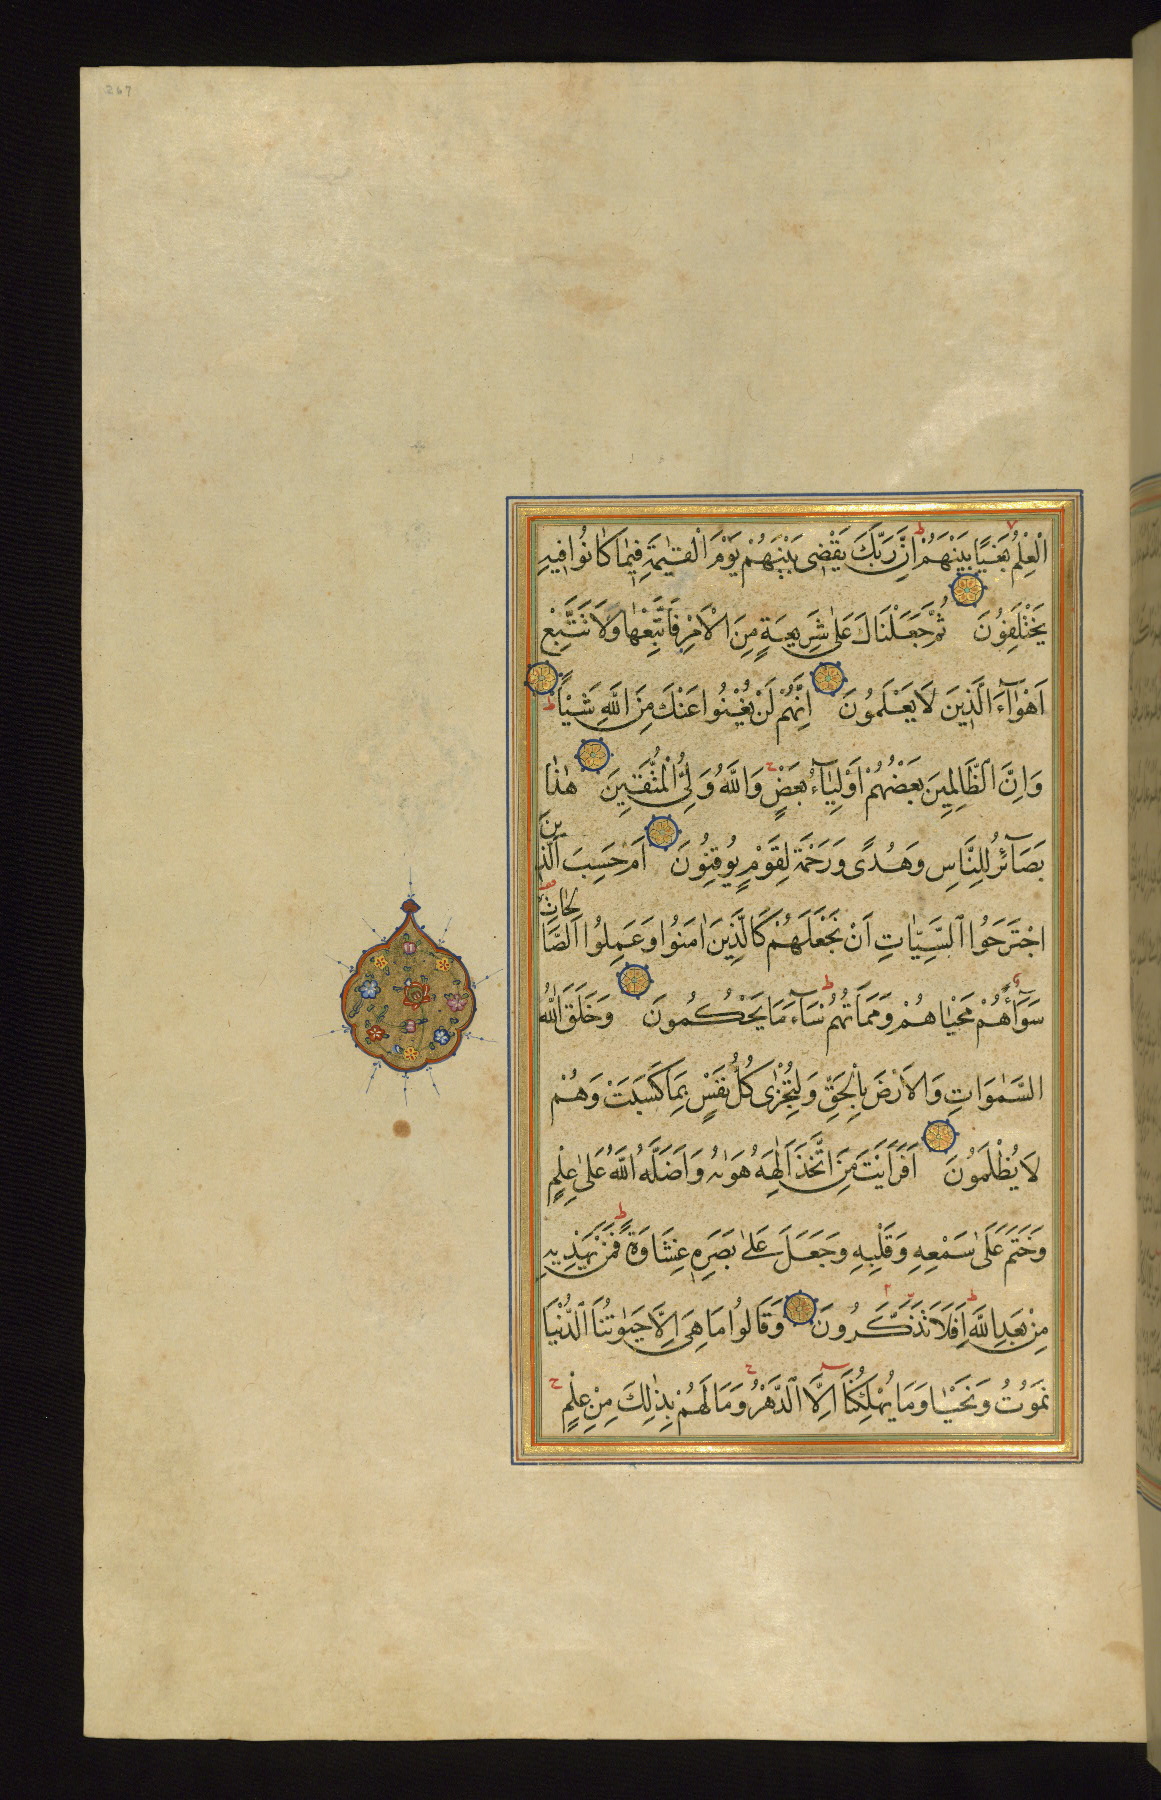 267
الْعِلْمُ بَغْيًا بَيْنَهُمْ اِنَّ رَبَّكَ يَقْضِى بَيْنَهُمْ يَوْمَ الْقِيٰمَةِ فِيمَا كَانُوا فِيهِ
يَخْتَلِفُونَ ثُمَّ جَعَلْنَاكَ عَلٰى شَرِيعَةٍ مِنَ الْاَمْرِ فَاتَّبِعْهَا وَلَا تَتَّبِعْ
اَهْوَآءَ الَّذِينَ لَا يَعْلَمُونَ اِنَّهُمْ لَنْ يُغْنُوا عَنْكَ مِنَ اللّٰهِ شَيْـًٔا
وَاِنَّ الظَّالِمِينَ بَعْضُهُمْ اَوْلِيَآءُ بَعْضٍ وَاللّٰهُ وَلِىُّ الْمُتَّقِينَ هٰذَا
بَصَآئِرُ لِلنَّاسِ وَهُدًى وَرَحْمَةٌ لِقَوْمٍ يُوقِنُونَ اَمْ حَسِبَ الَّذِينَ
اجْتَرَحُوا السَّيِّـَٔاتِ اَنْ نَجْعَلَهُمْ كَالَّذِينَ اٰمَنُوا وَعَمِلُوا الصَّالِحَاتِ
سَوَآءً مَحْيَاهُمْ وَمَمَاتُهُمْ سَآءَ مَا يَحْكُمُونَ وَخَلَقَ اللّٰهُ
السَّمٰوَاتِ وَالْاَرْضَ بِالْحَقِّ وَلِتُجْزٰى كُلُّ نَفْسٍ بِمَا كَسَبَتْ وَهُمْ
لَا يُظْلَمُونَ اَفَرَاَيْتَ مَنِ اتَّخَذَ اِلٰهَهُ هَوٰيهُ وَاَضَلَّهُ اللّٰهُ عَلٰى عِلْمٍ
وَخَتَمَ عَلٰى سَمْعِهِ وَقَلْبِهِ وَجَعَلَ عَلٰى بَصَرِهِ غِشَاوَةً فَمَنْ يَهْدِيهِ
مِنْ بَعْدِ اللّٰهِ اَفَلَا تَذَكَّرُونَ وَقَالُوا مَا هِىَ اِلَّا حَيَاتُنَا الدُّنْيَا
نَمُوتُ وَنَحْيَا وَمَا يُهْلِكُنَآ اِلَّا الدَّهْرُ وَمَا لَهُمْ بِذٰلِكَ مِنْ عِلْمٍ